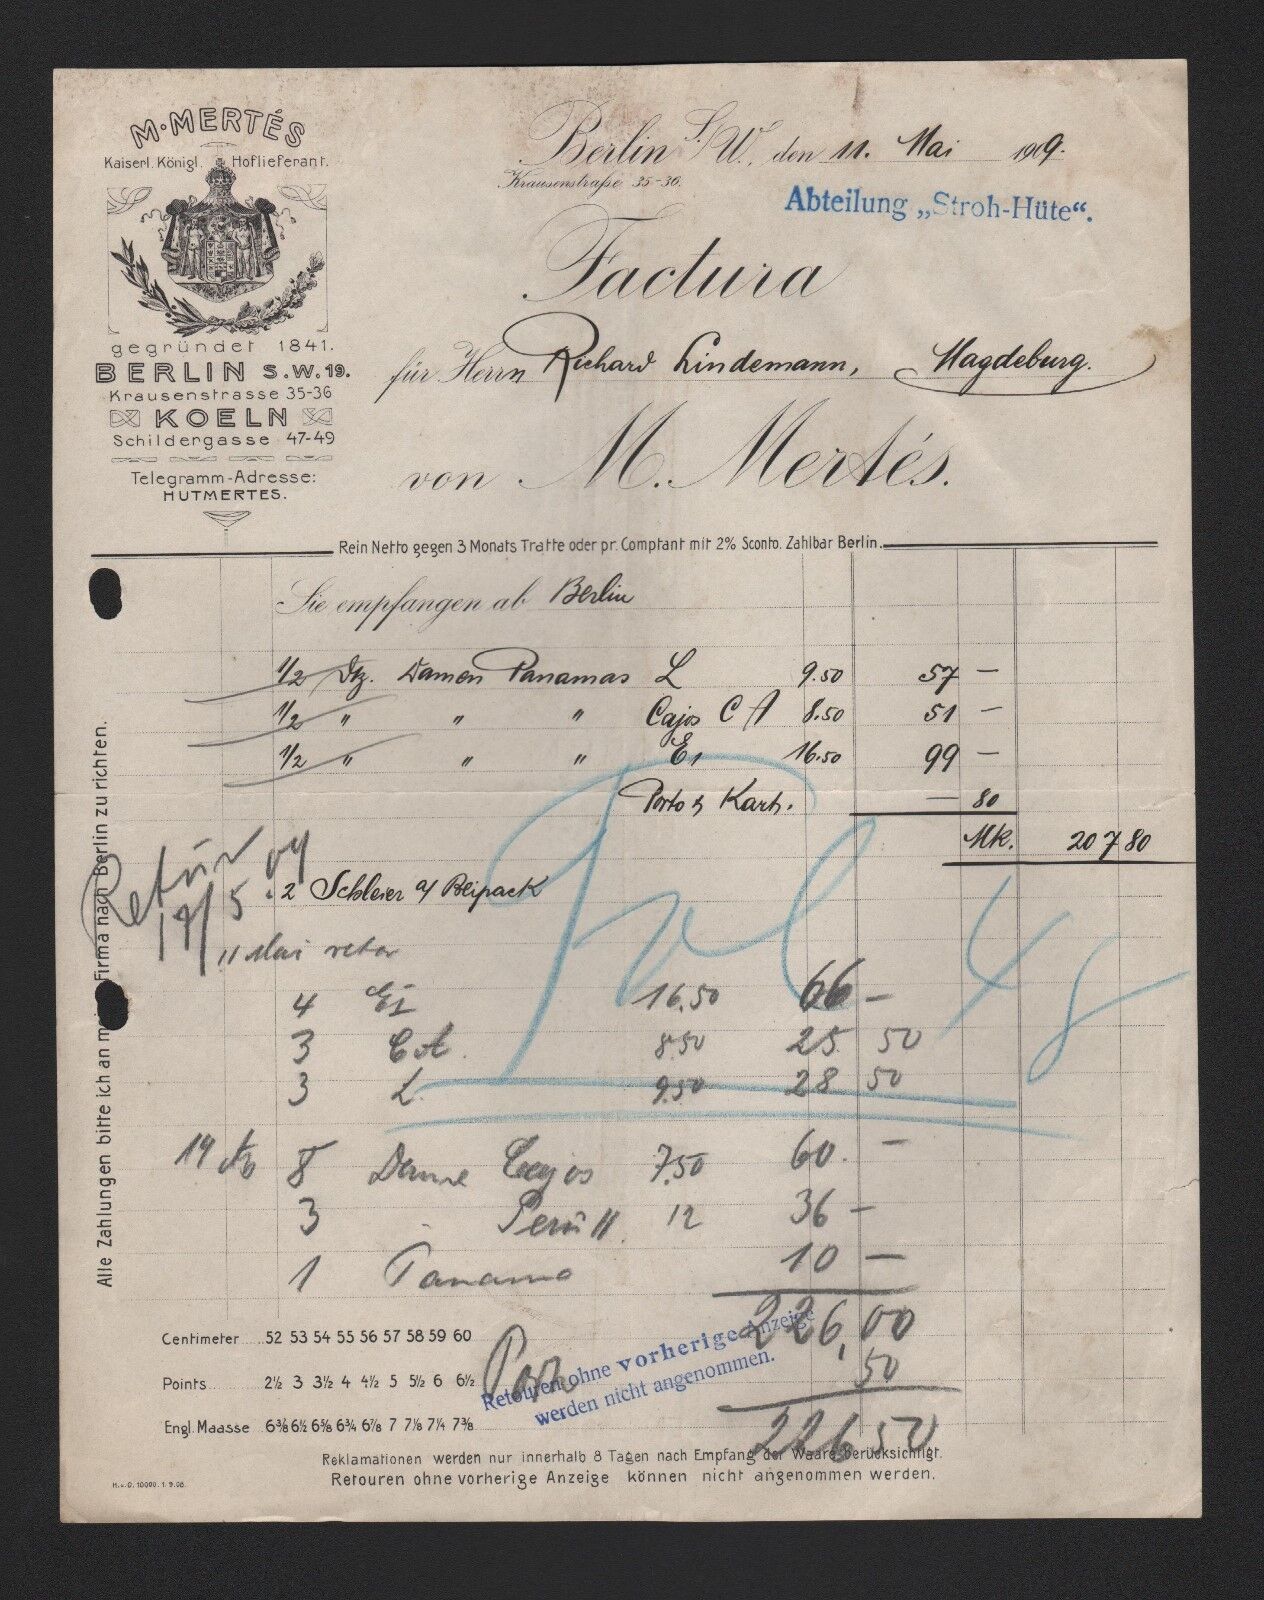 M. MERTÉS
Kaiserl. Königl. Hoflieferant.
gegründet 1841.
BERLIN S.W. 19.
Krausenstrasse 35-36
KOELN
Schildergasse 47-49
Telegramm-Adresse:
HUTMERTES.
Berlin S/W., den 11. Mai 1909.
Krausenstraße 35-36.
Abteilung „Stroh-Hüte“.
Factura
für Herrn Richard Lindemann, Magdeburg.
von M. Mertés.
Rein Netto gegen 3 Monats Tratte oder pr. Comptant mit 2% Sconto. Zahlbar Berlin.
Sie empfangen ab Berlin
1/2 Dtz. Damen Panamas L 9.50 57 —
1/2 " " " Cajos C A 8.50 51 —
1/2 " " " E, 16.50 99 —
Porto & Kart. — 80
Mk. 207 80
Retour 09
19/5
2 Schleier a/ Beipack
11 Mai retour
4 EI 16.50 66 —
3 C A. 8.50 25 50
3 L. 9.50 28 50
48
19 8 Dame Cajos 7.50 60. —
3 " Peru II. 12 36 —
1 Panama 10 —
226,00
Porto 50
226 50
Retouren ohne vorherige Anzeige
werden nicht angenommen.
Centimeter 52 53 54 55 56 57 58 59 60
Points 2½ 3 3½ 4 4½ 5 5½ 6 6½
Engl. Maasse 6⅜ 6½ 6⅝ 6¾ 6⅞ 7 7⅛ 7¼ 7⅜
Reklamationen werden nur innerhalb 8 Tagen nach Empfang der Waare berücksichtigt.
Retouren ohne vorherige Anzeige können nicht angenommen werden.
H. & O. 10000. 1. 9. 08.
Alle Zahlungen bitte ich an Firma nach Berlin zu richten.